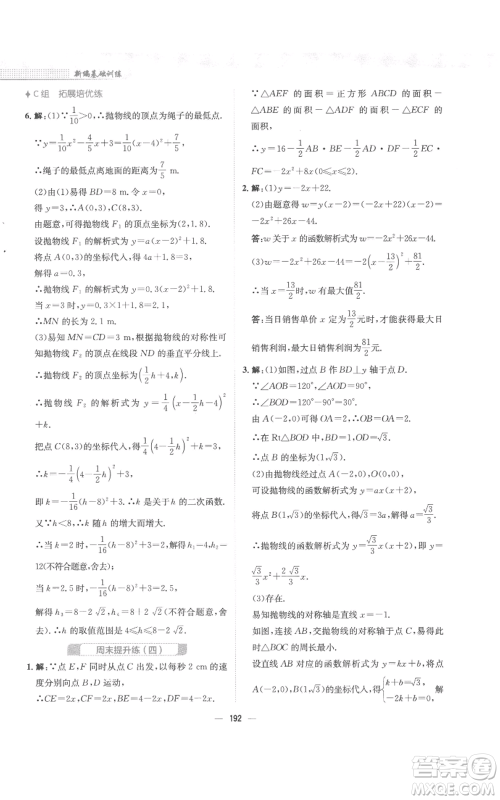 新编基础训练
C组 拓展培优练
6. 解：(1)∵1/10>0，∴抛物线的顶点为绳子的最低点.
∵y=1/10x²-4/5x+3=1/10(x-4)²+7/5，
∴绳子的最低点离地面的距离为7/5 m.
(2)由(1)可得 BD=8 m.
由题意可得抛物线 F₁ 的顶点为(2,1.8).
设抛物线 F₁ 的解析式为 y=a(x-2)²+1.8.
将点 A(0,3)的坐标代入，得 4a+1.8=3.
解得 a=0.3.
∴抛物线 F₁ 的解析式为 y=0.3(x-2)²+1.8.
当 x=3 时，y=0.3+1.8=2.1.
∴MN 的长为 2.1 m.
(3)易知 MN=CD=3 m. 根据抛物线的对称性可知抛物线 F₂ 的顶点在线段 ND 的垂直平分线上.
∴抛物线 F₂ 的解析式为 y=1/4(x-4-1/2h)²+k.
把点 C(8,3)的坐标代入，得1/4(4-1/2h)²+k=3.
∴k=-1/4(4-1/2h)²+3，
即 k=-1/16(h-8)²+3. ∴k 是关于 h 的二次函数.
又∵h<8，
∴当 k=2 时，-1/16(h-8)²+3=2. 解得 h=4 或 h=12(不符合题意，舍去).
当 k=2.5 时，-1/16(h-8)²+3=2.5.
解得 h=8-2√2 或 h=8+2√2(不符合题意，舍去). ∴h 的取值范围是 4≤h≤8-2√2.
周末提升练（四）
1. 解：∵点 E、F 从点 C 出发，以每秒 2 cm 的速度分别向点 D、B 运动，
∴CE=CF=2x，DE=BF=8-2x.
∵△AEF 的面积=正方形 ABCD 的面积-△ADE 的面积-△ABF 的面积-△CEF 的面积，
∴y=16-1/2AD·DE-1/2AB·BF-1/2EC·FC=-2x²+16x(0≤x≤2).
2. 解：(1)y=-2x+22.
(2)由题意可得 w=(x-2)(-2x+22)=-2x²+26x-44.
答：w 关于 x 的函数解析式为 w=-2x²+26x-44.
(3)w=-2x²+26x-44=-2(x-13/2)²+81/2
∴当 x=13/2 时，w 有最大值81/2.
答：当日销售单价 x 为13/2元时，才能获得最大日销售利润，最大日销售利润为81/2元.
3. 解：(1)如图，过点 B 作 BD⊥y 轴于点 D.
∵∠AOB=120°，∠AOD=90°，
∴∠BOD=120°-90°=30°.
由(2,0)可得 OA=2. ∴OB=2.
∴在 Rt△OBD 中，BD=1，OD=√3.
∴点 B 的坐标为(1,√3).
(2)由抛物线经过点 A(-2,0)，O(0,0)，
可设抛物线的函数解析式为 y=ax(x+2).
将点 B(1,√3)的坐标代入，得 a=√3/3.
∴抛物线的函数解析式为 y=√3/3x(x+2)=√3/3x²+2√3/3x.
(3)存在.
易知抛物线的对称轴为直线 x=-1. 如图，当点 C 是抛物线的对称轴与线段 AB 的交点时，△BOC 的周长最小.
设直线 AB 的函数解析式为 y=kx+b，
将点 A，B 的坐标代入，得{k+b=√3，-2k+b=0.
192